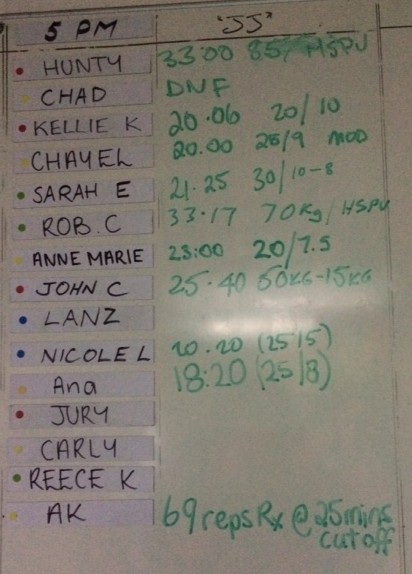 5 PM 'JJ'
HUNTY 33:00 85/ HSPU
CHAD DNF
KELLIE K 20.06 20/10
CHAYEL 20.00 26/9 MOD
SARAH E 21.25 30/10-8
ROB.C 33.17 70Kg/HSPU
ANNE MARIE 23:00 20/7.5
JOHN C 25.40 50KG-15KG
LANZ
NICOLE L 20.20 (25/5)
Ana 18:20 (25/8)
JURY
CARLY
REECE K
AK 69 reps Rx @ 25mins
cut off